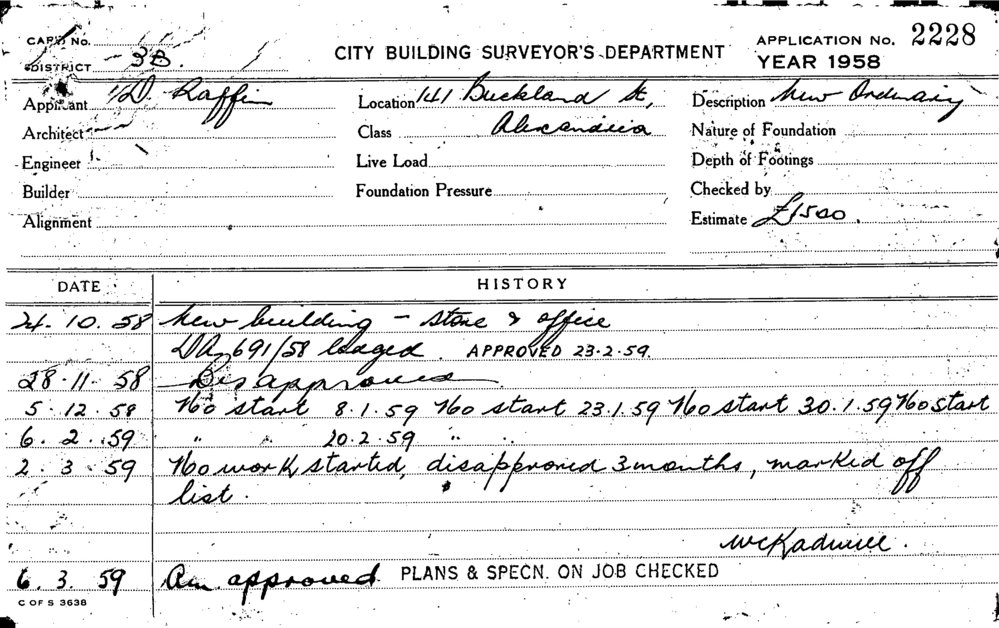 CARD No.
CITY BUILDING SURVEYOR'S DEPARTMENT
APPLICATION No. 2228
DISTRICT 3B.
YEAR 1958
Applicant D. Laffin Location 141 Buckland St, Description New Ordinary
Architect Class Alexandria Nature of Foundation
Engineer Live Load Depth of Footings
Builder Foundation Pressure Checked by
Alignment Estimate £1500.
DATE HISTORY
24.10.58 New building - store & office
DA 691/58 lodged. APPROVED 23-2-59.
28.11.58 Disapproved
5.12.58 No start 8.1.59 No start 23.1.59 No start 30.1.59 No start
6.2.59 " " 20.2.59 " "
2.3.59 No work started, disapproved 3 months, marked off
list.
6.3.59 approved. PLANS & SPECN. ON JOB CHECKED
C OF S 3638